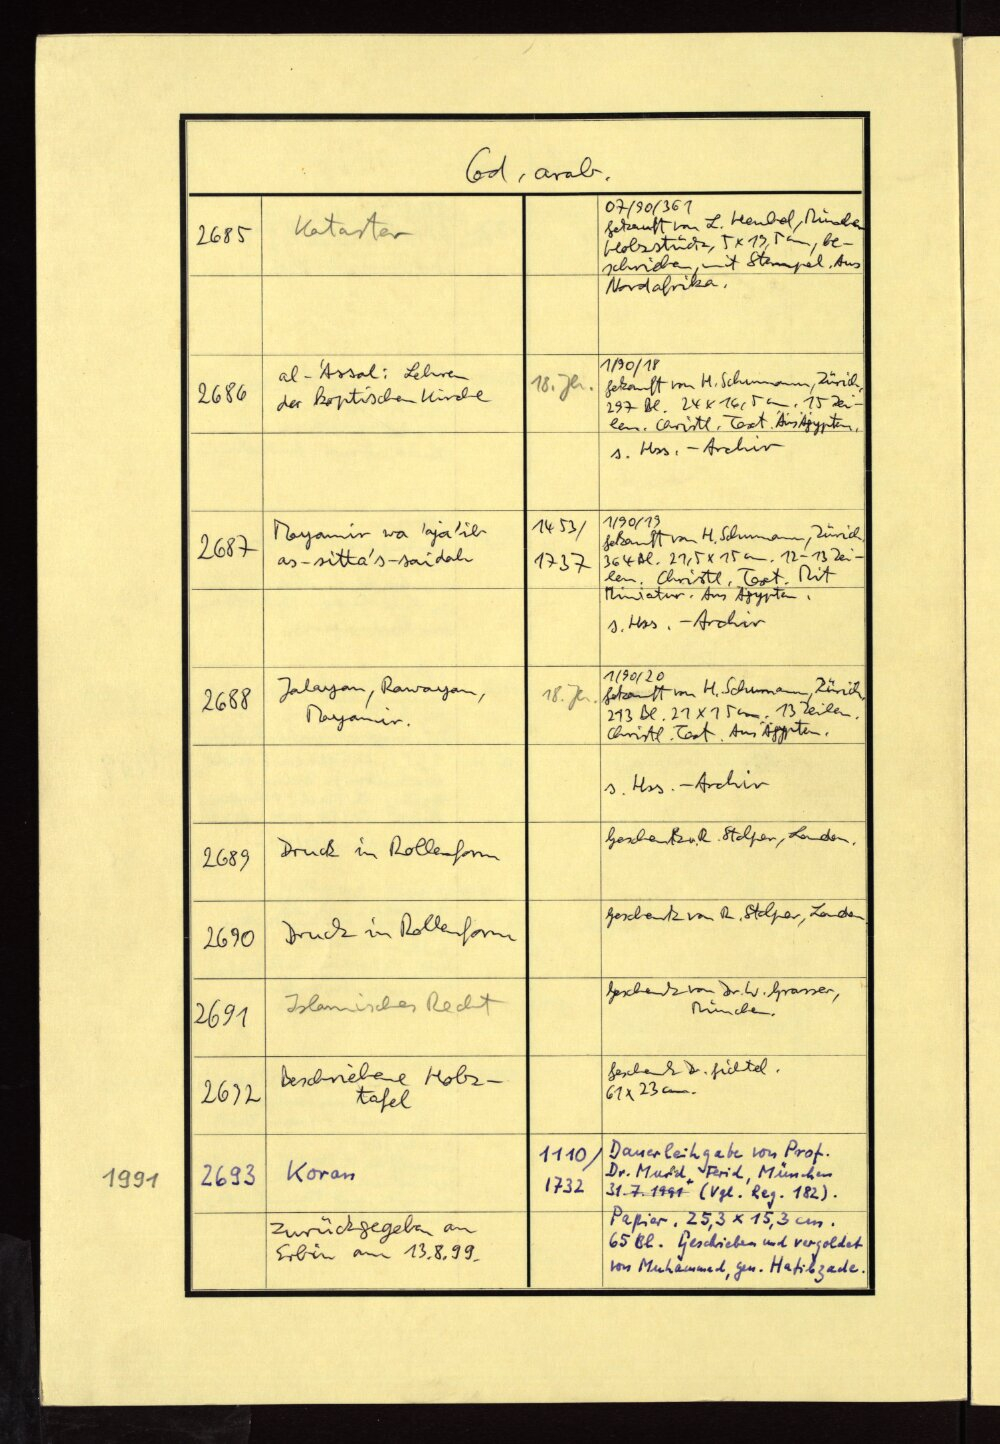 Cod. arab.
2685
Kataster
07/90/361
gekauft von L. Heubel, München
Holzstück, 5 x 19,5 cm, be-
schrieben, mit Stempel. Aus
Nordafrika.
2686
al-'Assal: Lehren
der koptischen Kirche
18. Jh.
1/90/18
gekauft von H. Schumann, Zürich,
297 Bl. 24 x 16,5 cm. 15 Zei-
len. Christl. Text. Aus Ägypten.
s. Hss.-Archiv
2687
Mayamir wa 'aja'ib
as-sitta's-saidah
1453/
1737
1/90/19
gekauft von H. Schumann, Zürich
364 Bl. 21,5 x 15 cm. 12-13 Zei-
len. Christl. Text. Mit
Miniatur. Aus Ägypten.
s. Hss.-Archiv
2688
Jalayan, Rawayan,
Mayamir.
18. Jh.
1/90/20
gekauft von H. Schumann, Zürich,
293 Bl. 21 x 15 cm. 13 Zeilen.
Christl. Text. Aus Ägypten.
s. Hss.-Archiv
2689
Druck in Rollenform
Geschenk v. R. Stolper, London.
2690
Druck in Rollenform
Geschenk von R. Stolper, London
2691
Islamisches Recht
Geschenk von Dr. W. Grasser,
München.
2692
Beschriebene Holz-
tafel
Geschenk Dr. Fichtel.
61 x 23 cm.
1991
2693
Koran
1110/
1732
Dauerleihgabe von Prof.
Dr. Murid Ferid, München
31.7.1991 (Vgl. Reg. 182).
Papier. 25,3 x 15,3 cm.
65 Bl. Geschrieben und vergoldet
von Muhammed, gen. Hafibzade.
zurückgegeben an
Erbin am 13.8.99.